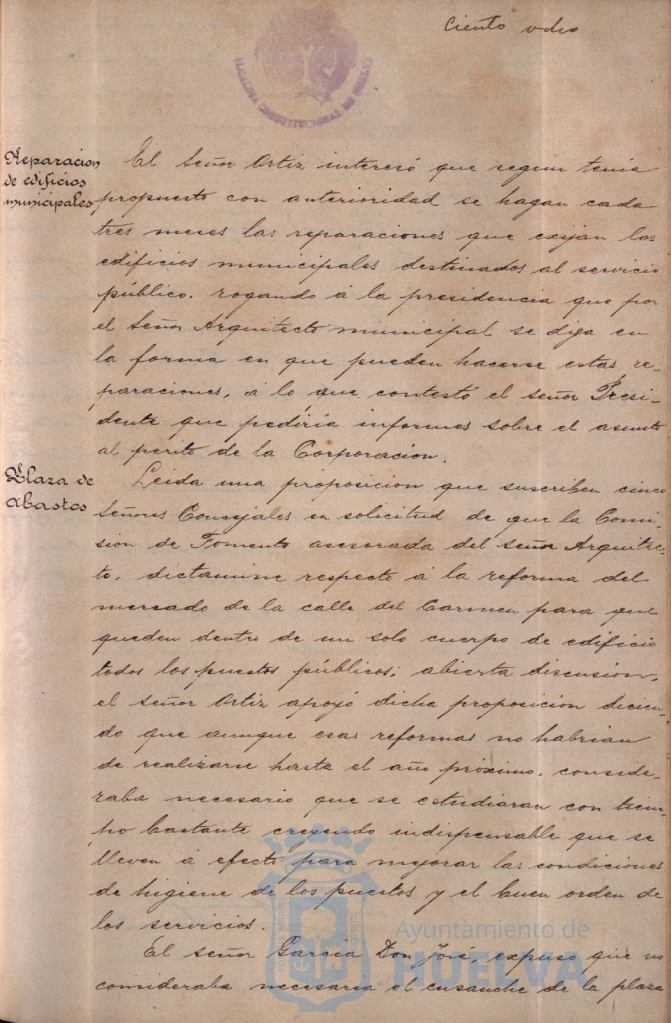 Ciento ocho
ALCALDIA CONSTITUCIONAL DE HUELVA
Reparacion
de edificios
municipales
El Señor Ortiz interesó que segun tenia
propuesto con anterioridad se hagan cada
tres meses las reparaciones que exijan los
edificios municipales destinados al servicio
público, rogando á la presidencia que por
el Señor Arquitecto municipal se diga en
la forma en que pueden hacerse estas re-
paraciones, á lo que contestó el señor Presi-
dente que pediria informes sobre el asunto
al perito de la Corporacion.
Plaza de
Abastos
Leida una proposicion que suscriben cinco
Señores Concejales en solicitud de que la Comi-
sion de Fomento asesorada del señor Arquitec-
to, dictamine respecto á la reforma del
mercado de la calle del Carmen para que
queden dentro de un solo cuerpo de edificio
todos los puestos públicos; abierta discusion,
el señor Ortiz apoyó dicha proposicion dicien-
do que aunque esas reformas no habrian
de realizarse hasta el año próximo, conside-
raba necesario que se estudiaran con tiem-
po bastante creyendo indispensable que se
lleven á efecto para mejorar las condiciones
de higiene de los puestos y el buen orden de
los servicios.
El señor Garcia Don José, expuso que no
consideraba necesaria el ensanche de la plaza
Ayuntamiento de
HUELVA